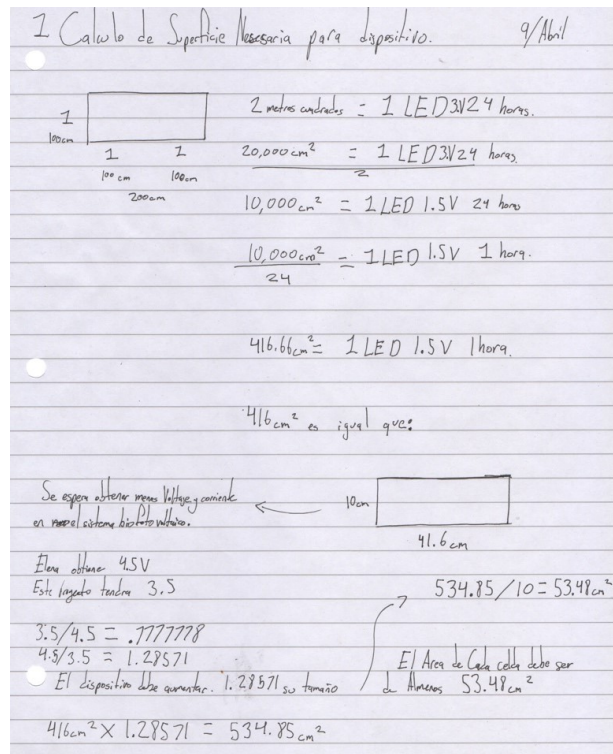 1 Calculo de Superficie Necesaria para dispositivo. 9/Abril
1
100cm
1 1
100 cm 100cm
200cm
2 metros cuadrados = 1 LED 3V 24 horas.
20,000cm² = 1 LED 3V 24 horas.
2
10,000cm² = 1 LED 1.5V 24 horas
10,000cm² = 1 LED 1.5V 1 hora.
24
416.66cm² = 1 LED 1.5V 1 hora.
416cm² es igual que:
Se espera obtener menos Voltaje y corriente
en el sistema biofotovoltaico.
10cm
41.6 cm
obtiene 4.5V
Este tendra 3.5
3.5/4.5 = .7777778
4.5/3.5 = 1.28571
El dispositivo debe aumentar. 1.28571 su tamaño
416cm² X 1.28571 = 534.85cm²
534.85/10 = 53.48cm²
El Area de Cada celda debe ser
de Almenos 53.48cm²